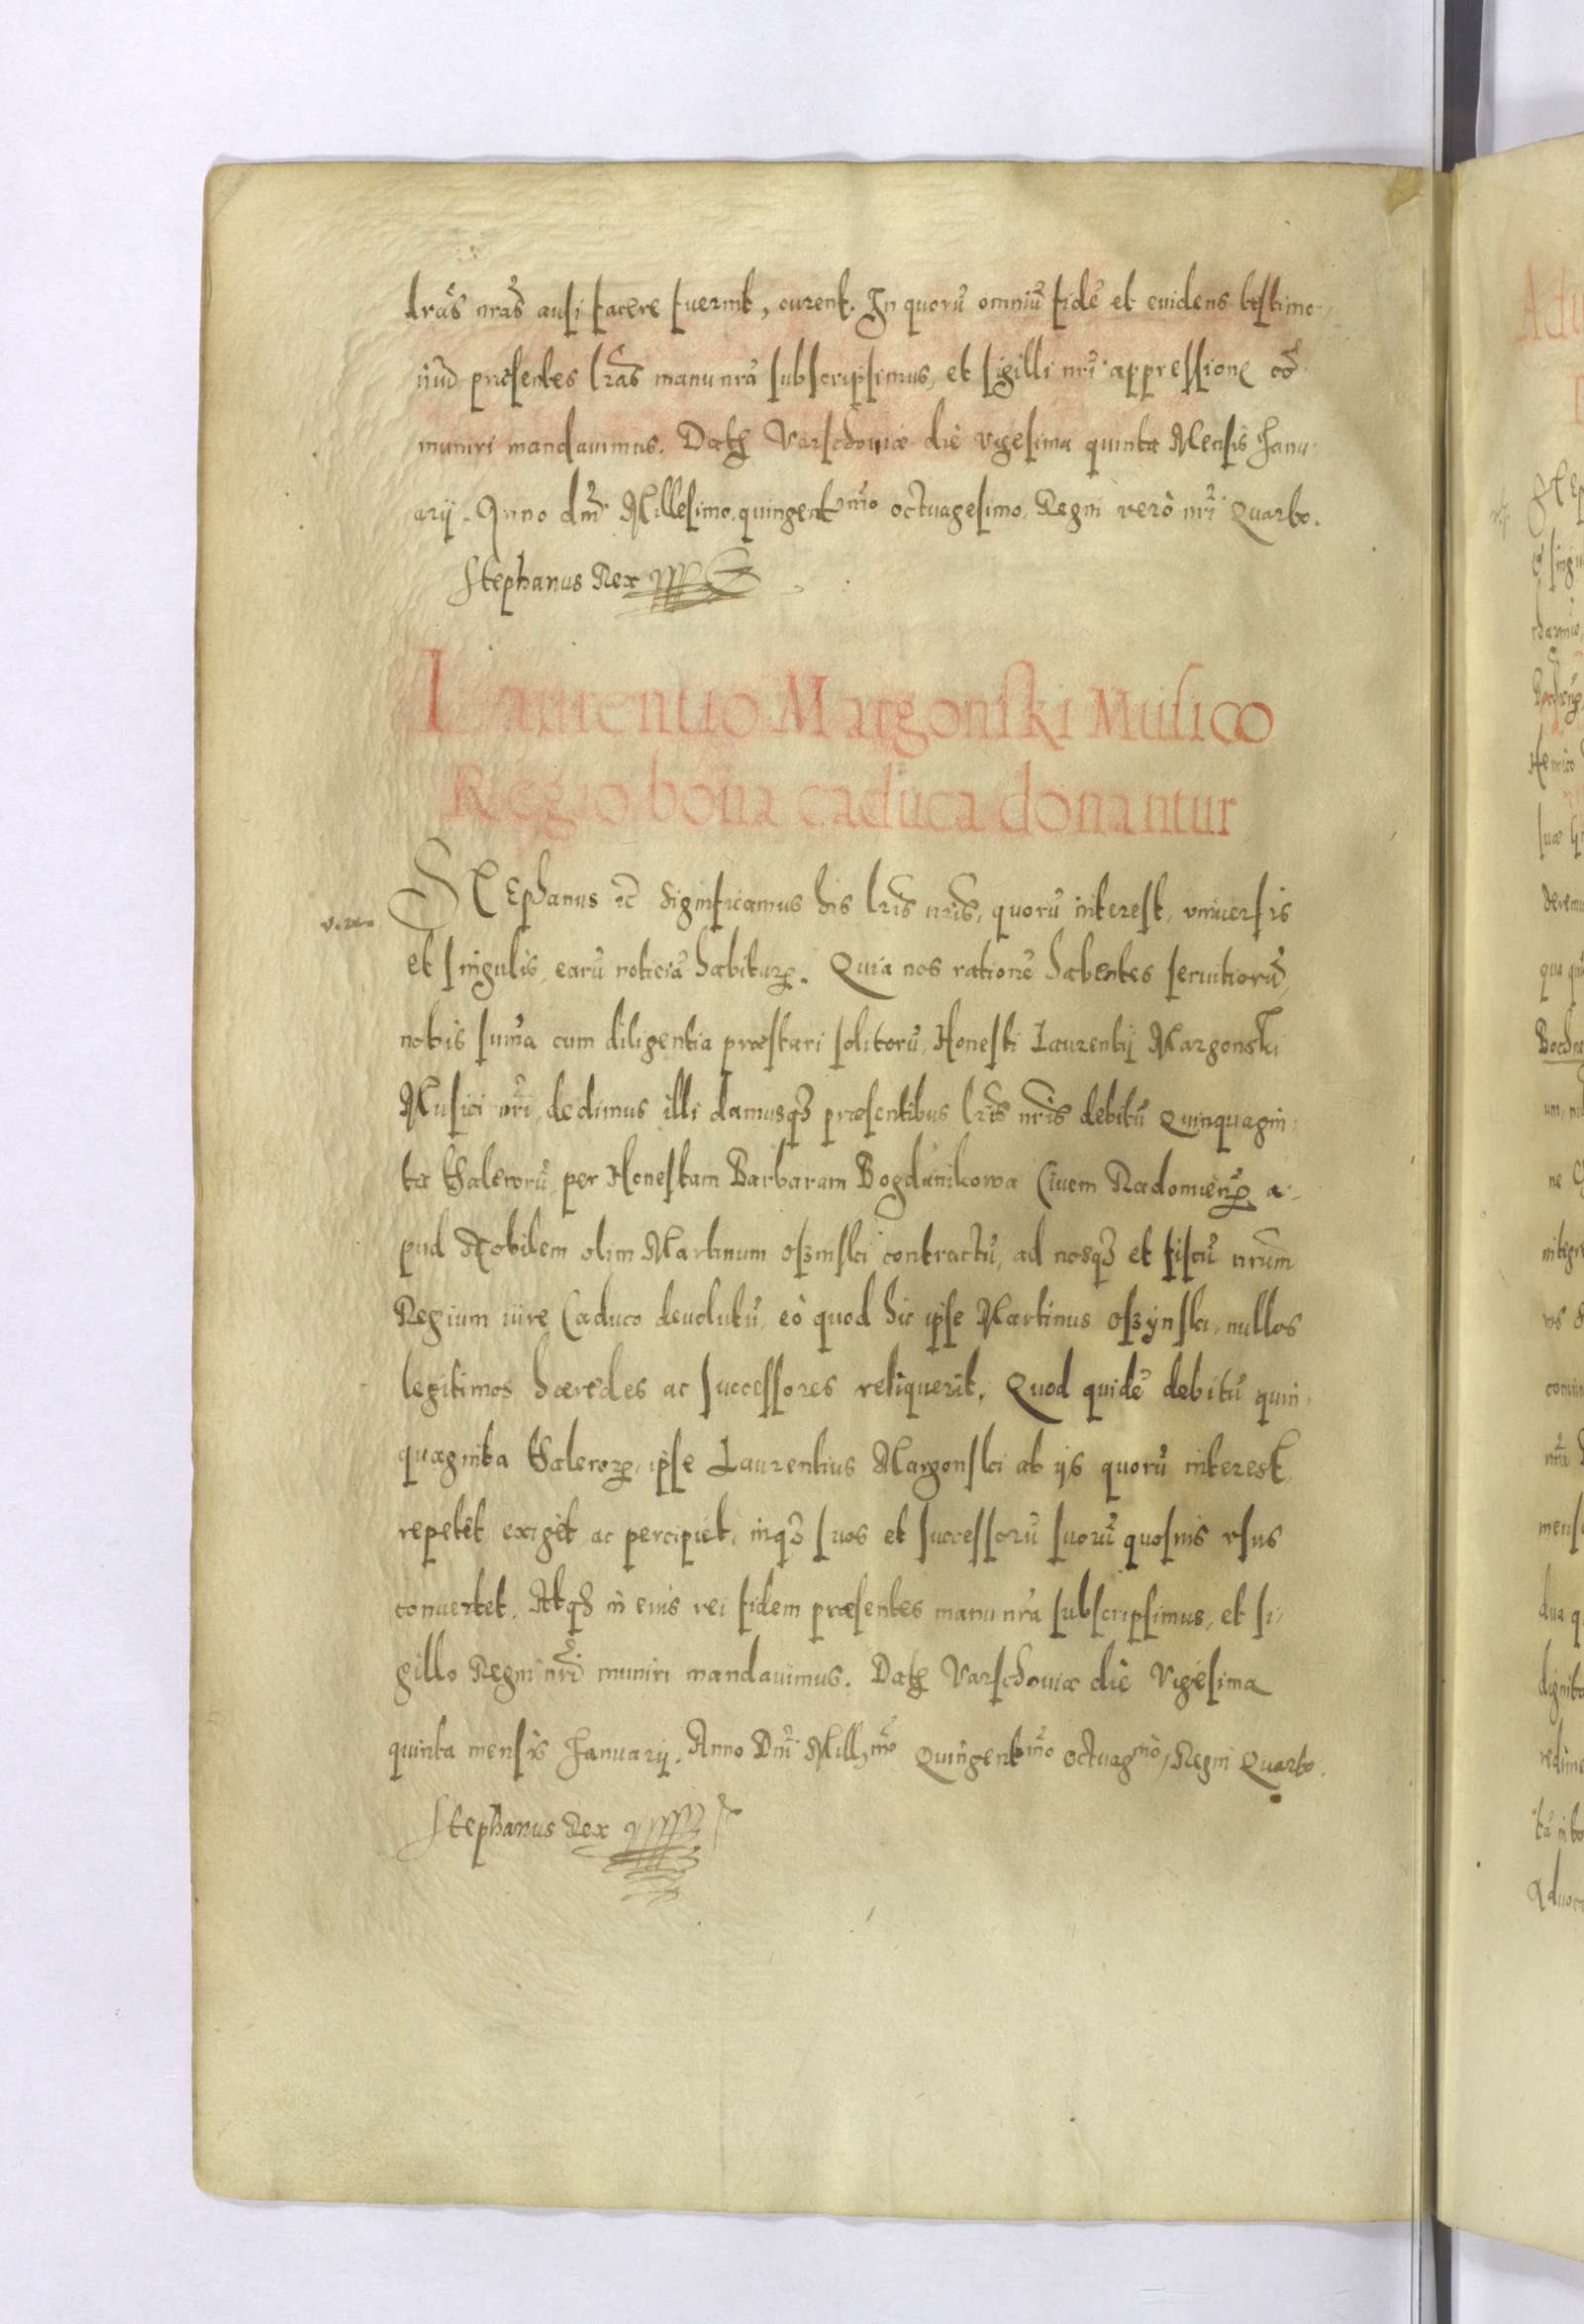 tras nras ausi facere fuerint, curent. In quorũ omniũ fidẽ et euidens testimo-
niũ præsentes lras manu nrã subscripsimus, et sigilli nri appressione cõ-
muniri mandauimus. Datę Varschouiæ die vigesima quinta Mensis Janu-
arij. Anno dñi Millesimo quingentmo octuagesimo, Regni verò nri Quarto.
Stephanus Rex
Laurentio Margonski Musico
Regio bona caduca donantur
STEphanus ꝛc̃ Significamus his lris nris, quorũ interest, vniuersis
et singulis, earũ noticiã habiturꝝ. Quia nos rationẽ habentes seruitiorũ,
nobis sum̃a cum diligentia præstari solitorũ, Honesti Laurentij Margonski
Musici nri, dedimus illi damusqꝫ præsentibus lris nris debitũ Quinquagin-
ta thalerorũ, per Honestam Barbaram Bogdanikowa Ciuem Radomienꝝ a-
pud Nobilem olim Martinum Oszinski contractũ, ad nosqꝫ et fiscũ nrum
Regium iure Caduco deuolutũ, eò quod hic ipse Martinus Oszÿnski, nullos
legitimos hæredes ac successores reliquerit. Quod quidẽ debitũ quin-
quaginta thalerorꝝ, ipse Laurentius Margonski ab ijs quorũ interest
repetet exiget ac percipiet, inqꝫ suos et successorũ suorũ quosuis vsus
conuertet. Atqꝫ in eius rei fidem præsentes manu nrã subscripsimus, et si-
gillo Regni nri muniri mandauimus. Datę Varschouiæ die Vigesima
quinta mensis Januarij. Anno Dñi Millmo Quingentmo octuagmo, Regni Quarto.
Stephanus Rex